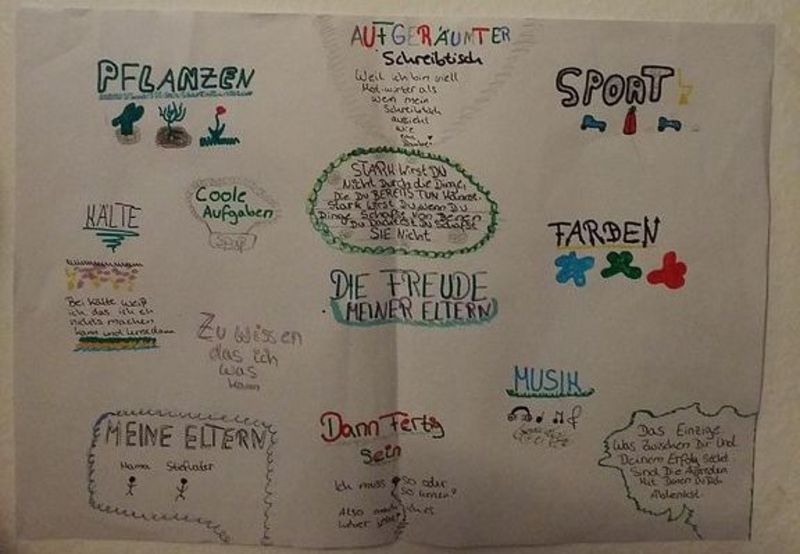 AUFGERÄUMTER
Schreibtisch
Weil ich bin viell
mein
Schreibtisch
aussieht
wie
PFLANZEN
SPORT
Coole
Aufgaben
Spaß
STARK wirst DU
Nicht Durch die Dinge,
Die Du BEREITS TUN Kannst.
Stark wirst Du wenn Du
Dinge Schaffst von Denen
Du Dachtest Du Schafst
SIE Nicht
KÄLTE
Bei Kälte weiß
ich das ich eh
nichts machen
kann und lerne dann
FARDEN
DIE FREUDE
MEINER ELTERN
Zu wissen
das ich
was
kann
MUSIK
MEINE ELTERN
Mama Stiefvater
Dann Fertig
Sein
Ich muss so oder
so lernen?
Also ich es
Das Einzige
Was Zwischen Dir Und
Deinem Erfolg
Sind Die
Mit Denen Du Dich
Ablenkst.